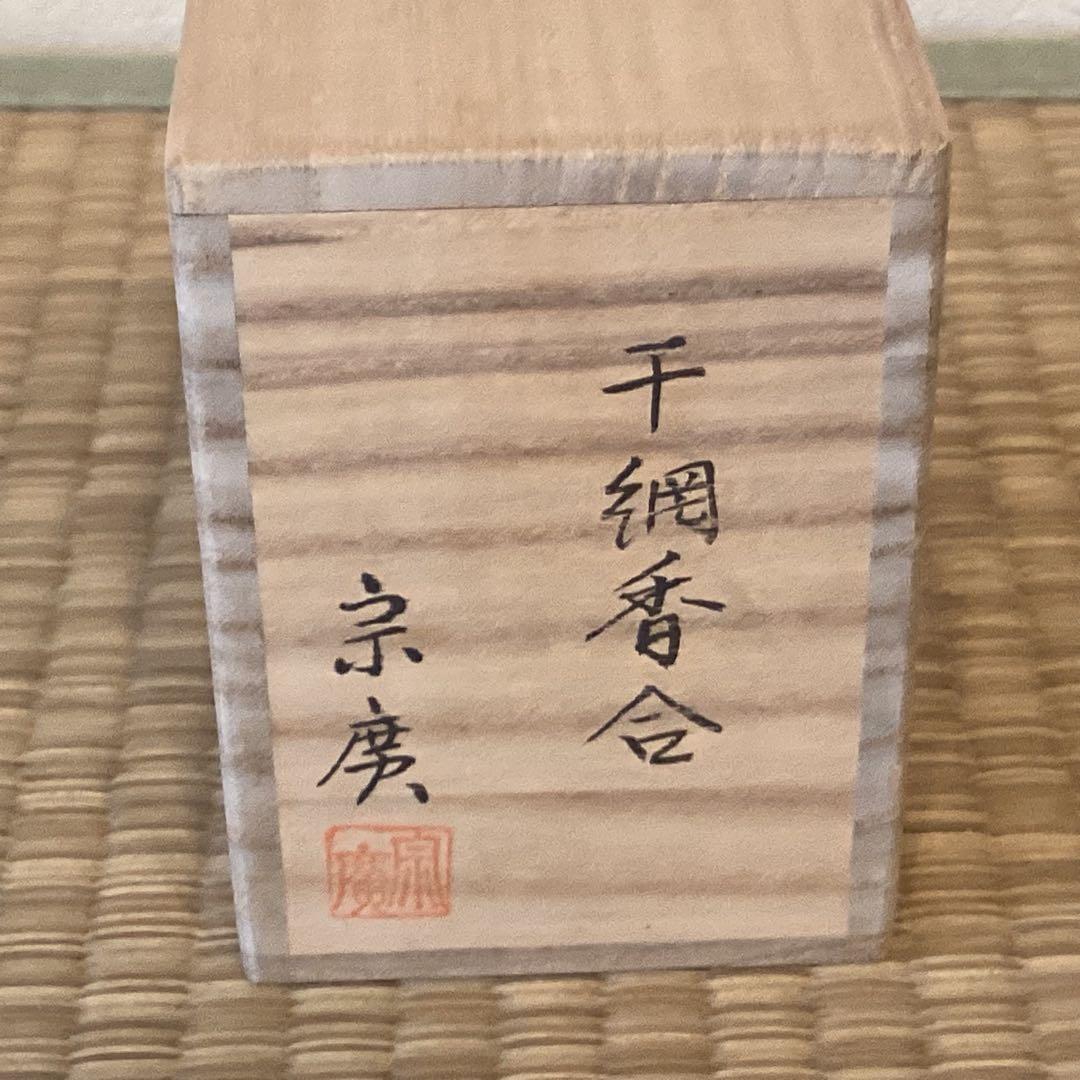 干網香合
宗廣
宗廣